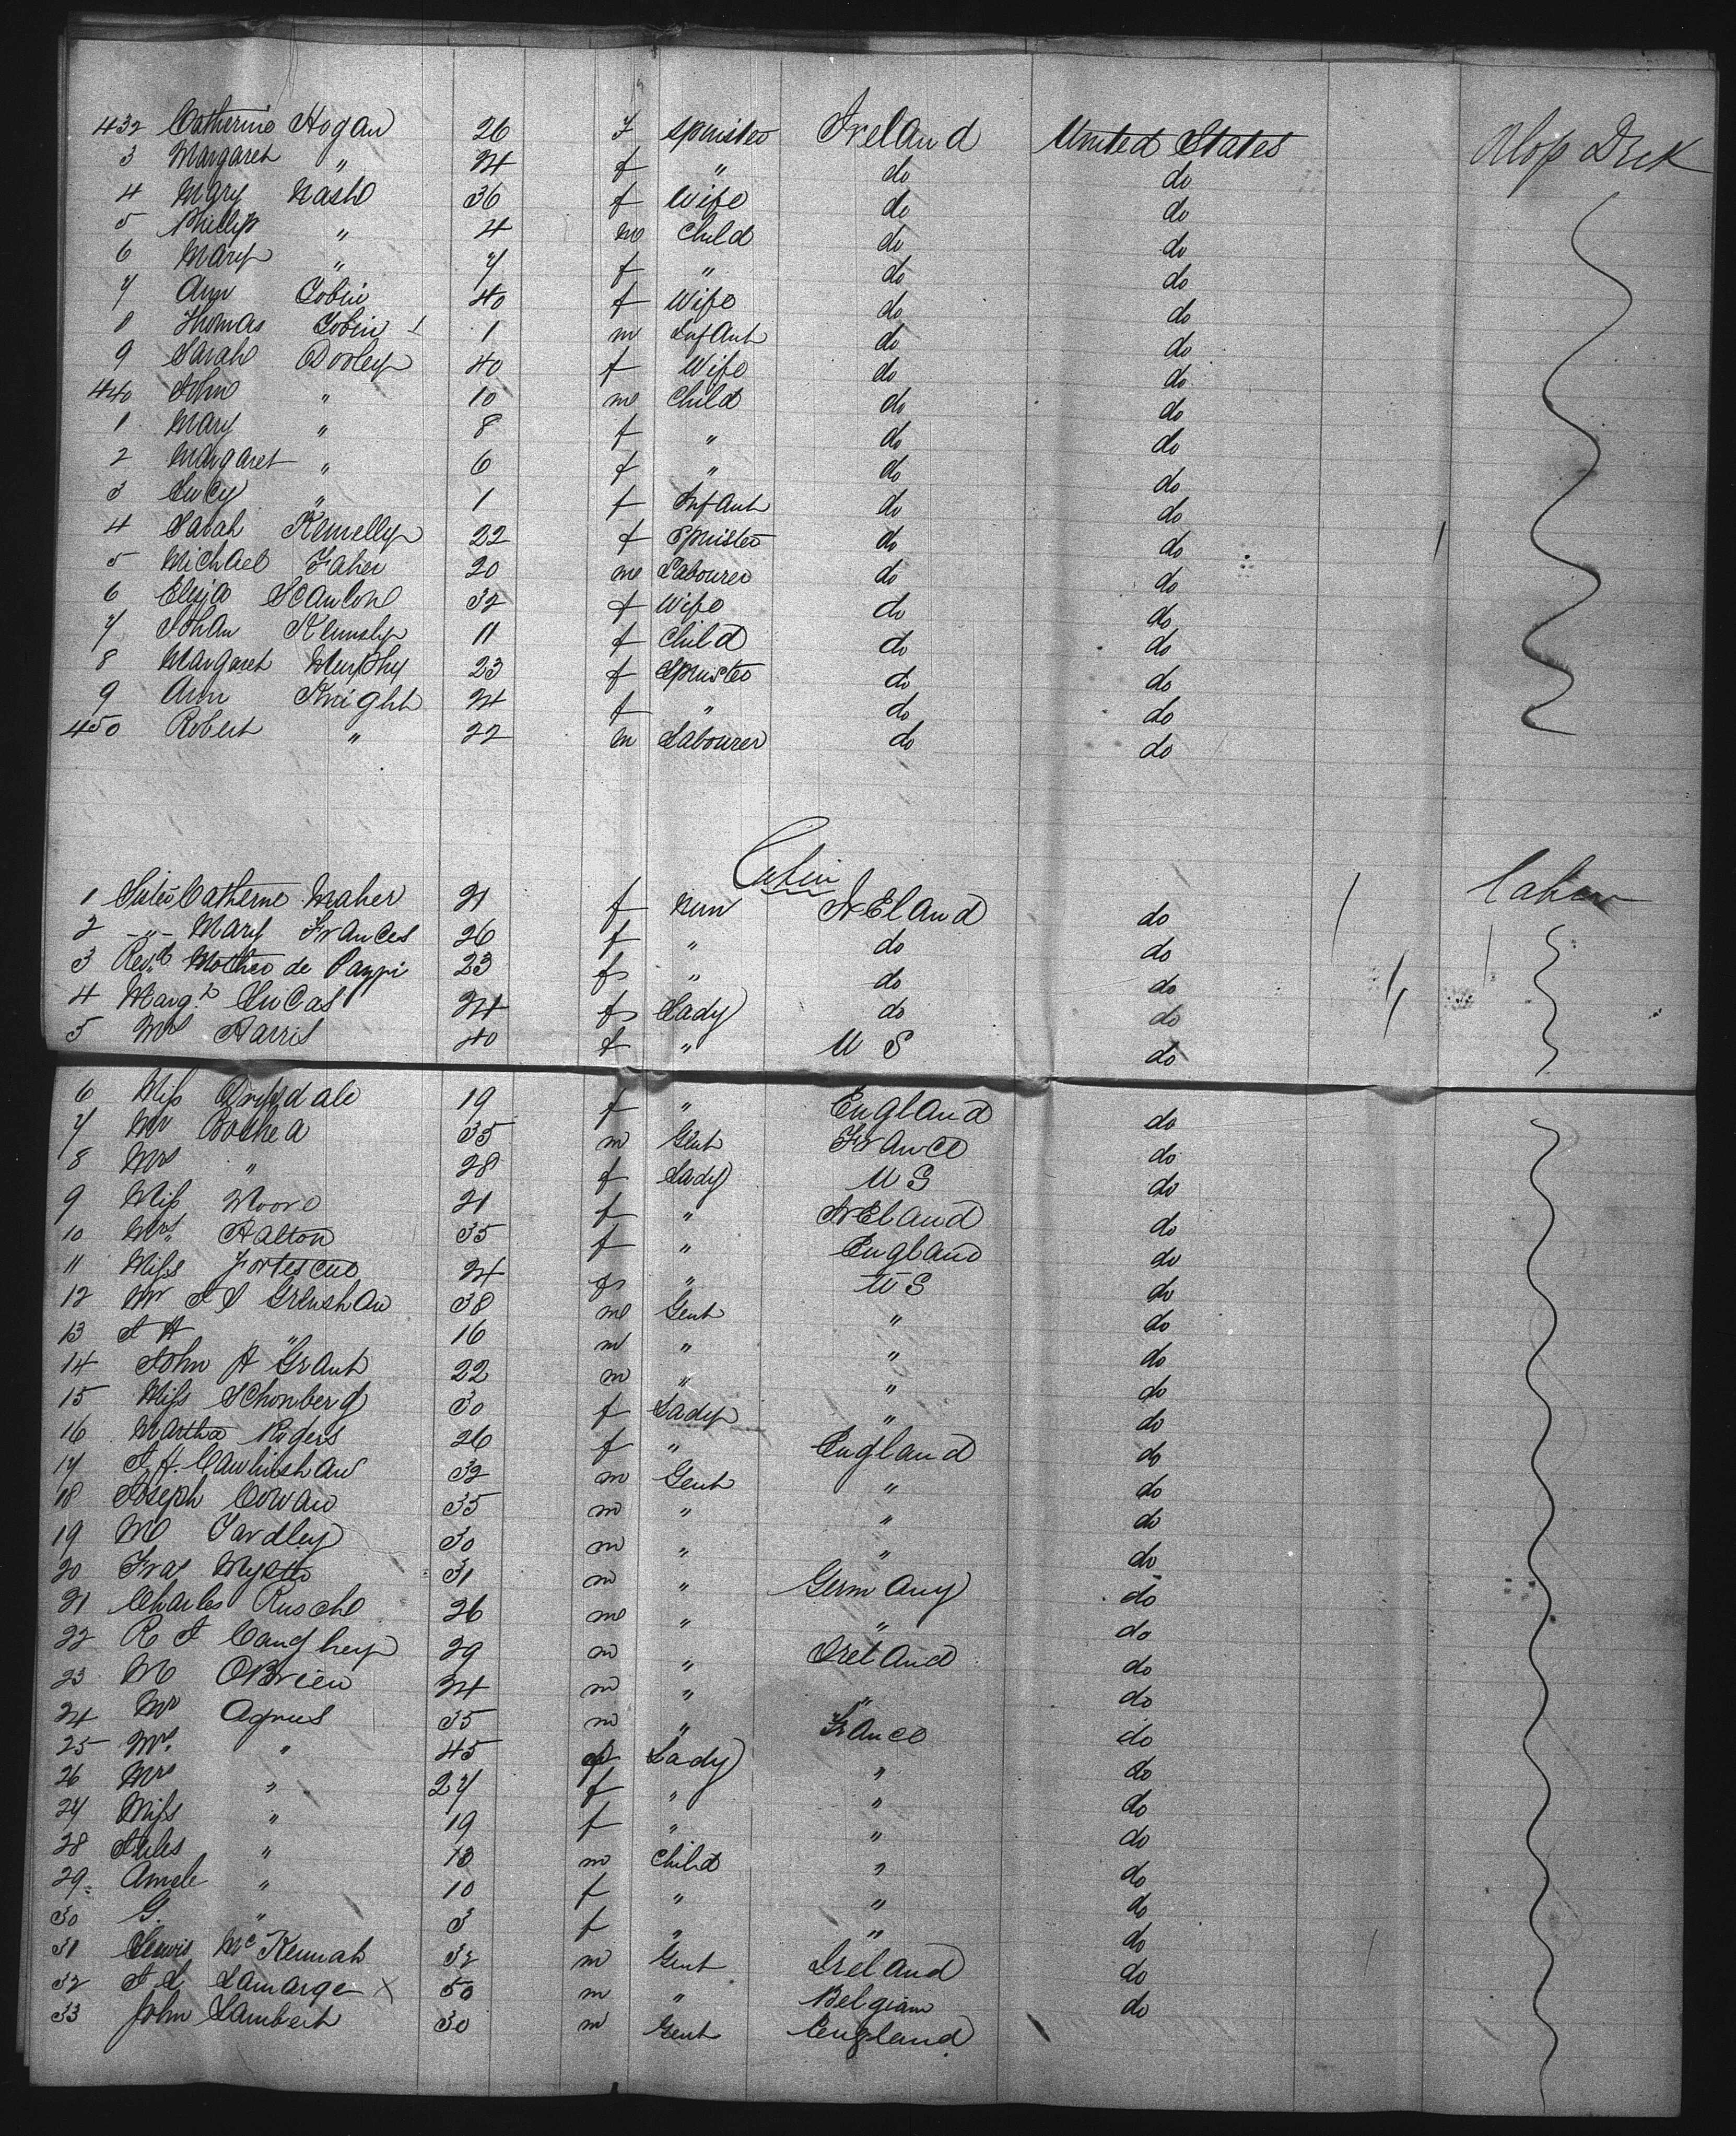 432 Catherine Hogan 26 f Spinster Ireland United States Upp Deck
3 Margaret " 24 f " do do
4 Mary Nash 36 f Wife do do
5 Phillip " 4 m Child do do
6 Mary " 7 f " do do
7 Ann Tobin 40 f Wife do do
8 Thomas Tobin 1 m Infant do do
9 Sarah Dooley 40 f Wife do do
440 John " 10 m Child do do
1 Mary " 8 f " do do
2 Margaret " 6 f " do do
3 Lucy " 1 f Infant do do
4 Sarah 22 f Spinster do do
5 Michael Faher 20 m Labourer do do
6 Eliza Scanlon 32 f Wife do do
7 Johan 11 f Child do do
8 Margaret Murphy 23 f Spinster do do
9 Ann Knight 24 f " do do
450 Robert " 22 m Labourer do do
Cabin
1 Sister Catherine Maher 21 f Nun Ireland do Cabin
2 -"- Mary Frances 26 f " do do
3 Revd Mother de Pazzi 23 f " do do
4 Margt Lucas 24 f Lady do do
5 Mrs Harris 40 f " U S do
6 Miss 19 f " England do
7 Mr 35 m Gent France do
8 Mrs " 28 f Lady U S do
9 Miss Moore 21 f " Ireland do
10 Mrs Halton 35 f " England do
11 Miss Fortescue 24 f " U S do
12 Mr Grenshaw 38 m Gent " do
13 J H " 16 m " " do
14 John A Grant 22 m " " do
15 Miss Schonberg 30 f Lady " do
16 Martha Rogers 26 f " England do
17 32 m Gent " do
18 Joseph Cowan 35 m " " do
19 M Yardley 30 m " " do
20 31 m " Germany do
21 Charles Rusche 26 m " " do
22 R J Caughey 29 m " Ireland do
23 M OBrien 24 m " " do
24 Mr Agnus 35 m " France do
25 " 45 f Lady " do
26 Mrs " 27 f " " do
27 Miss " 19 f " " do
28 Jules " 13 m Child " do
29 " 10 f " " do
30 G. " 3 f " " do
31 Lewis McKennah 32 m Gent Ireland do
32 Lamarge X 50 m " Belgium do
33 John Lambert 30 m Gent England